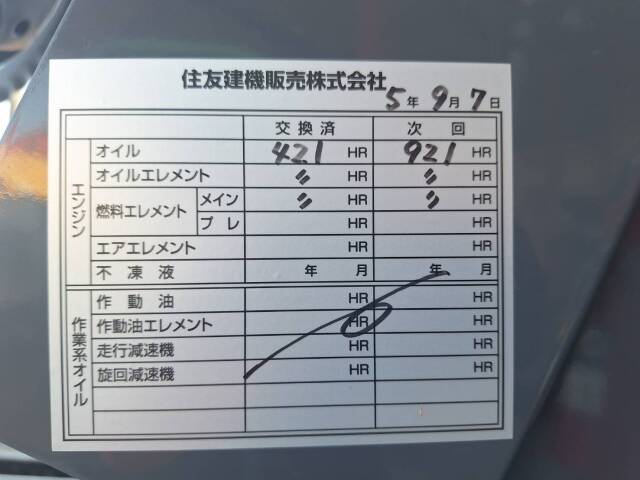 住友建機販売株式会社
5年9月7日
交換済 次回
エンジン
オイル 421 HR 921 HR
オイルエレメント 〃 HR 〃 HR
燃料エレメント メイン 〃 HR 〃 HR
プレ HR HR
エアエレメント HR HR
不凍液 年 月 年 月
作業系オイル
作動油 HR HR
作動油エレメント HR HR
走行減速機 HR HR
旋回減速機 HR HR